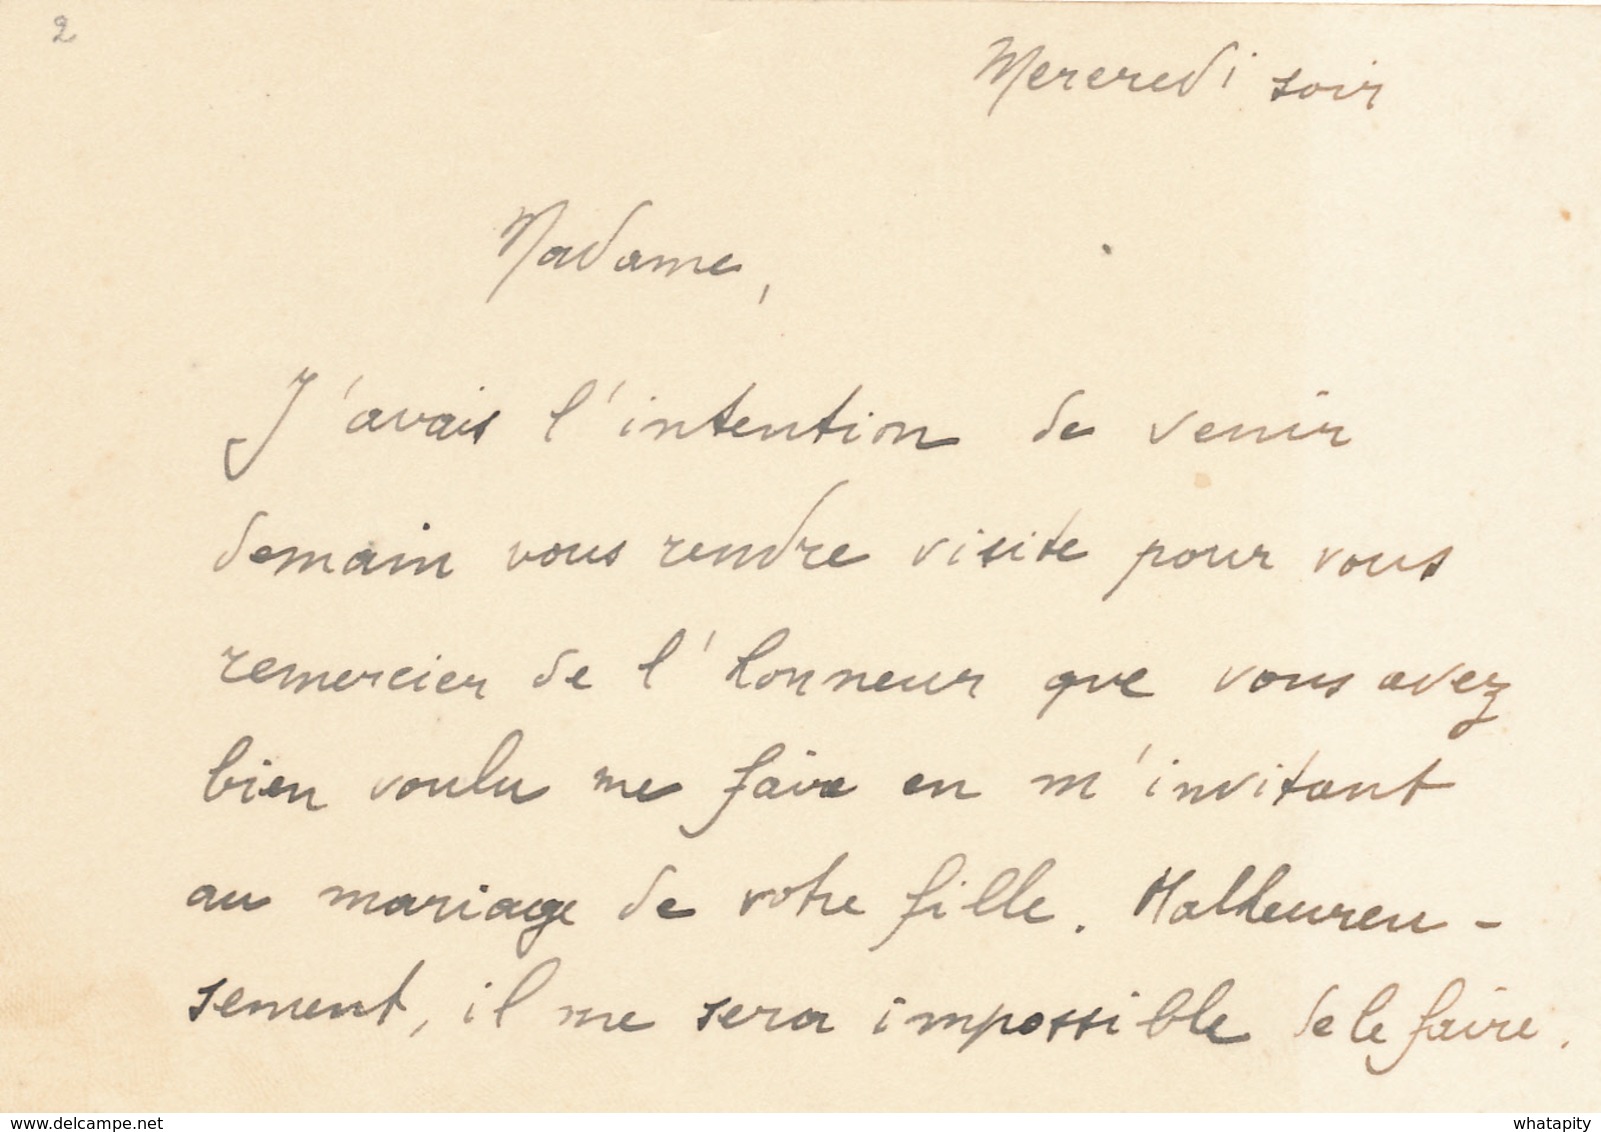 2
Mercredi soir
Madame,
J'avais l'intention de venir
demain vous rendre visite pour vous
remercier de l'honneur que vous avez
bien voulu me faire en m'invitant
au mariage de votre fille. Malheureu-
sement, il me sera impossible de le faire.
www.delcampe.net
whatapity